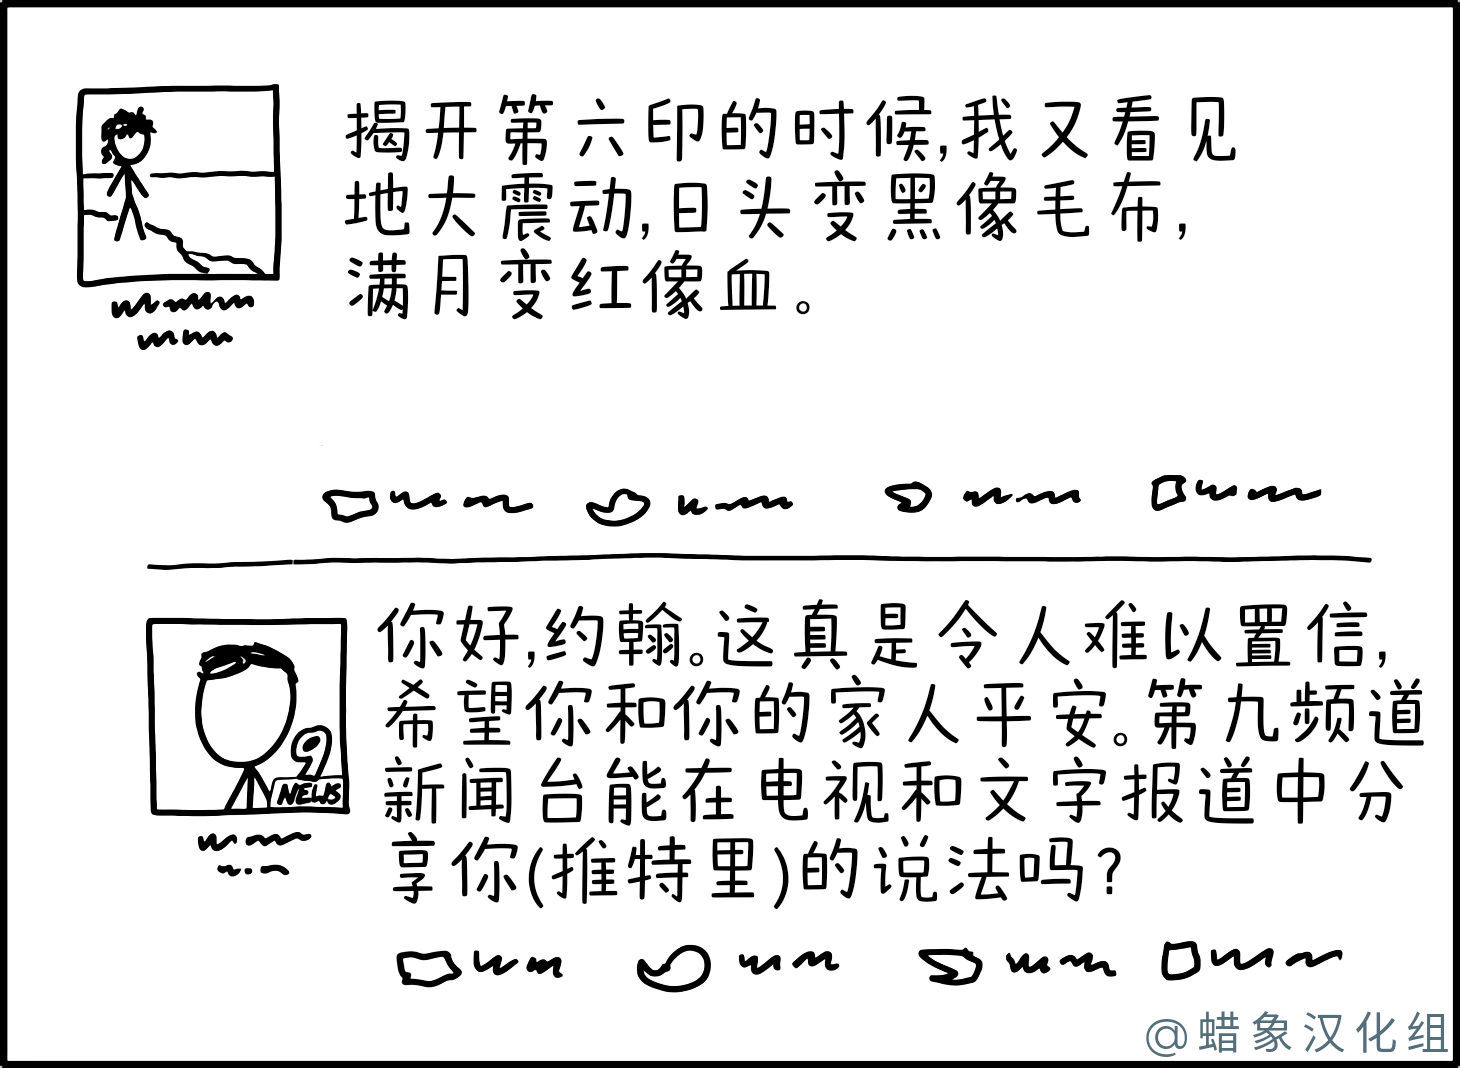 揭开第六印的时候,我又看见
地大震动,日头变黑像毛布,
满月变红像血。
你好,约翰。这真是令人难以置信,
希望你和你的家人平安。第九频道
新闻台能在电视和文字报道中分
享你(推特里)的说法吗?
9
NEWS
@蜡象汉化组